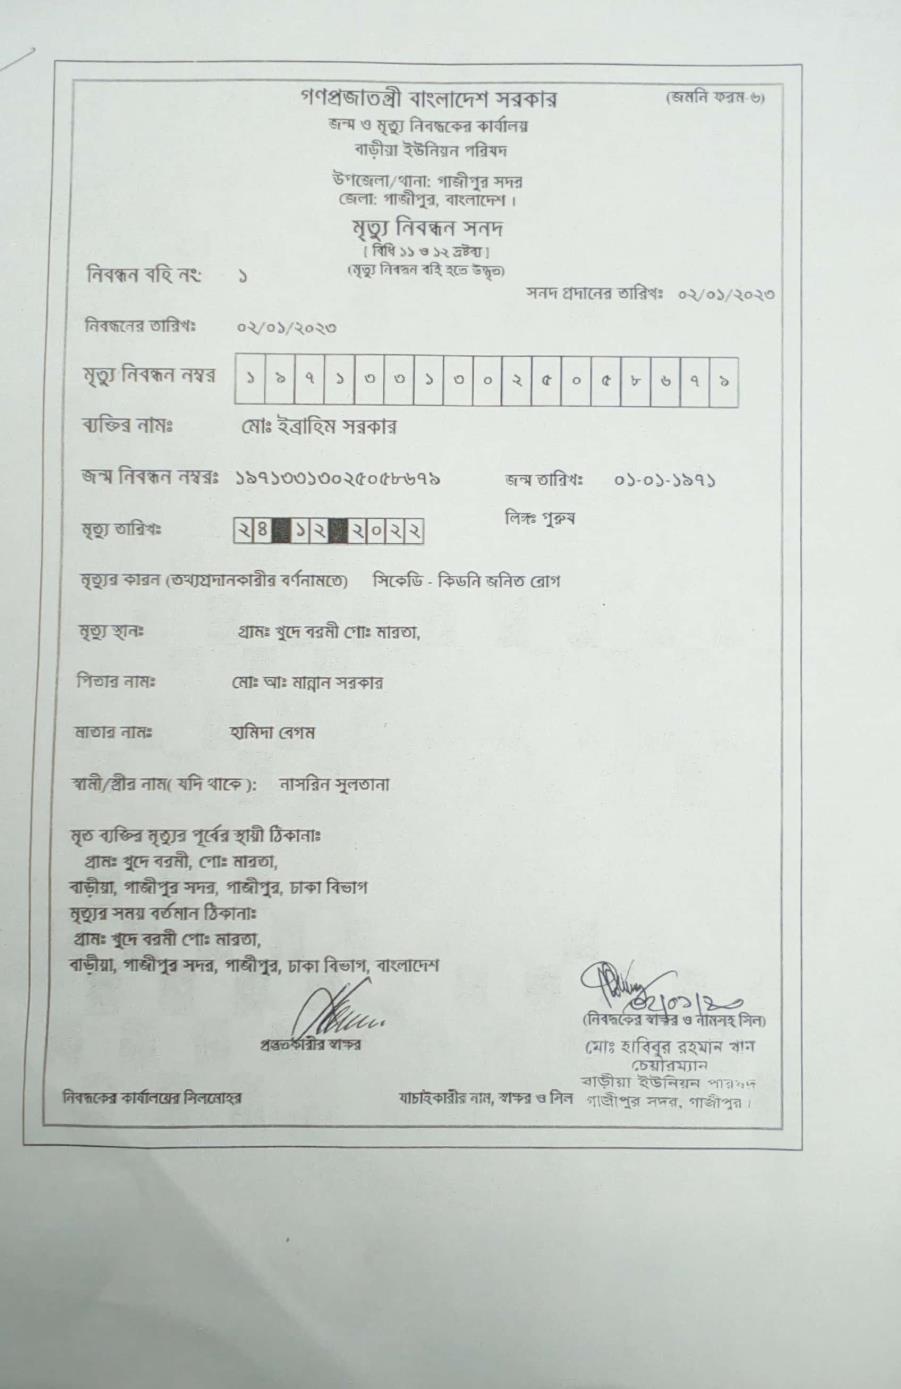 গণপ্রজাতন্ত্রী বাংলাদেশ সরকার
(জমনি ফরম-৬)
জন্ম ও মৃত্যু নিবন্ধকের কার্যালয়
বাড়ীয়া ইউনিয়ন পরিষদ
উপজেলা/থানা: গাজীপুর সদর
জেলা: গাজীপুর, বাংলাদেশ।
মৃত্যু নিবন্ধন সনদ
[ বিধি ১১ ও ১২ দ্রষ্টব্য]
(মৃত্যু নিবন্ধন বহি হতে উদ্ধৃত)
নিবন্ধন বহি নং: ১
সনদ প্রদানের তারিখঃ ০২/০১/২০২৩
নিবন্ধনের তারিখঃ ০২/০১/২০২৩
মৃত্যু নিবন্ধন নম্বর ১ ৯ ৭ ১ ৩ ৩ ১ ৩ ০ ২ ৫ ০ ৫ ৮ ৬ ৭ ৯
ব্যক্তির নামঃ মোঃ ইব্রাহিম সরকার
জন্ম নিবন্ধন নম্বরঃ ১৯৭১৩৩১৩০২৫০৫৮৬৭৯ জন্ম তারিখঃ ০১-০১-১৯৭১
মৃত্যু তারিখঃ ২৪ ১২ ২০২২ লিঙ্গঃ পুরুষ
মৃত্যুর কারন (তথ্যপ্রদানকারীর বর্ণনামতে) সিকেডি - কিডনি জনিত রোগ
মৃত্যু স্থানঃ গ্রামঃ খুদে বরমী পোঃ মারতা,
পিতার নামঃ মোঃ আঃ মান্নান সরকার
মাতার নামঃ হামিদা বেগম
স্বামী/স্ত্রীর নাম( যদি থাকে ): নাসরিন সুলতানা
মৃত ব্যক্তির মৃত্যুর পূর্বের স্থায়ী ঠিকানাঃ
গ্রামঃ খুদে বরমী, পোঃ মারতা,
বাড়ীয়া, গাজীপুর সদর, গাজীপুর, ঢাকা বিভাগ
মৃত্যুর সময় বর্তমান ঠিকানাঃ
গ্রামঃ খুদে বরমী পোঃ মারতা,
বাড়ীয়া, গাজীপুর সদর, গাজীপুর, ঢাকা বিভাগ, বাংলাদেশ
০২/০১/২৩
প্রস্তুতকারীর স্বাক্ষর
(নিবন্ধকের স্বাক্ষর ও নামসহ সিল)
মোঃ হাবিবুর রহমান খান
চেয়ারম্যান
বাড়ীয়া ইউনিয়ন পরিষদ
গাজীপুর সদর, গাজীপুর।
নিবন্ধকের কার্যালয়ের সিলমোহর
যাচাইকারীর নাম, স্বাক্ষর ও সিল